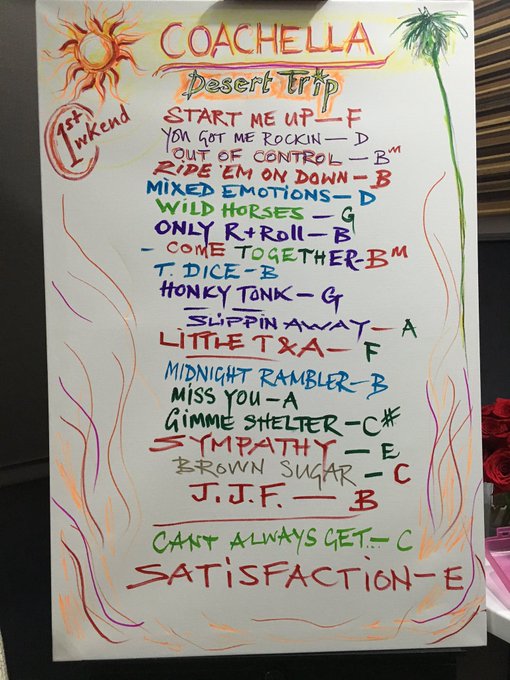 COACHELLA
Desert Trip
1st wkend
START ME UP — F
YOU GOT ME ROCKIN — D
OUT OF CONTROL — Bm
RIDE 'EM ON DOWN — B
MIXED EMOTIONS — D
WILD HORSES — G
ONLY R+ROLL — B
- COME TOGETHER - Bm
T. DICE - B
HONKY TONK — G
SLIPPIN AWAY — A
LITTLE T & A — F
MIDNIGHT RAMBLER - B
MISS YOU - A
GIMME SHELTER - C#
SYMPATHY — E
BROWN SUGAR - C
J.J.F. — B
CANT ALWAYS GET... - C
SATISFACTION - E